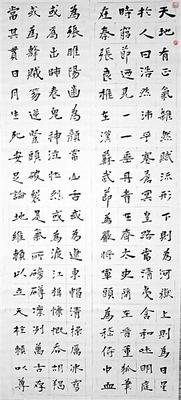 天地有正氣雜然賦流形下則為河嶽上則為日星
於人曰浩然沛乎塞蒼冥皇路當清夷含和吐明庭
時窮節乃見一一垂丹青在齊太史簡在晉董狐筆
在秦張良椎在漢蘇武節為嚴將軍頭為嵇侍中血
為張睢陽齒為顏常山舌或為遼東帽清操厲冰雪
或為出師表鬼神泣壯烈或為渡江楫慷慨吞胡羯
或為擊賊笏逆豎頭破裂是氣所磅礴凜冽萬古存
當其貫日月生死安足論地維賴以立天柱賴以尊